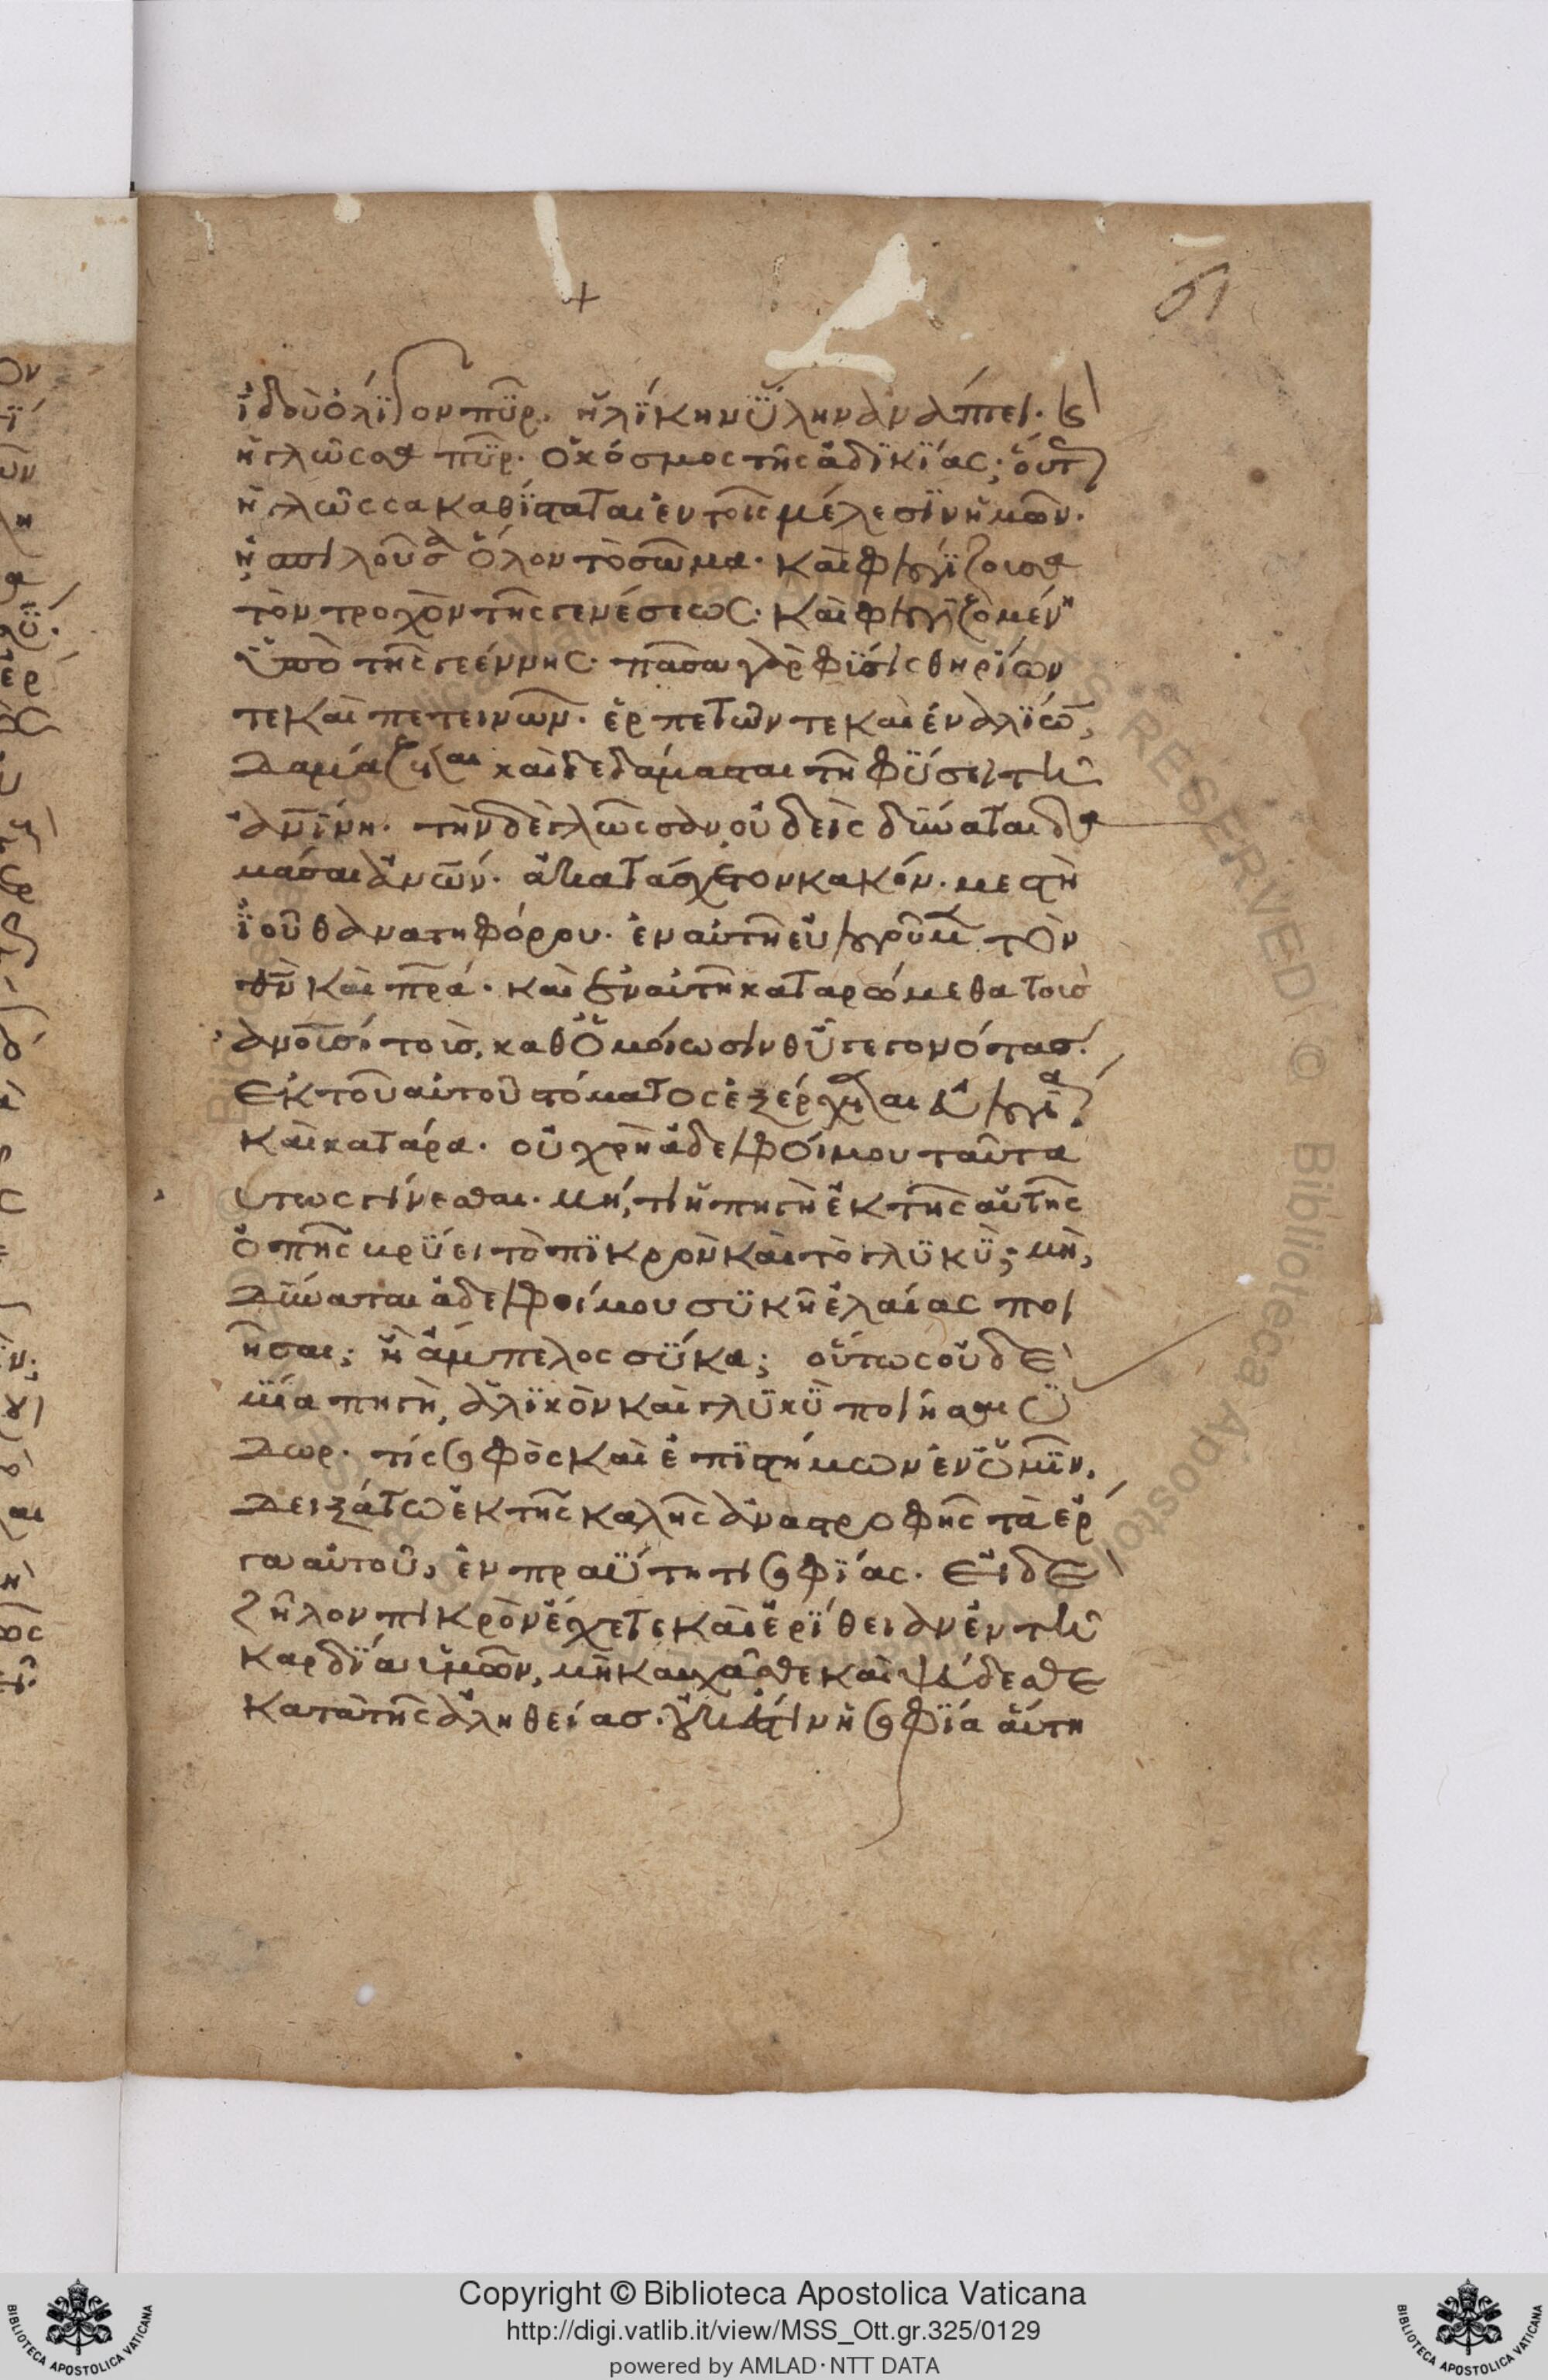 61
ἰδοὺ ὀλίγον πῦρ. ἡλίκην ὕλην ἀνάπτει. καὶ
ἡ γλῶσσα πῦρ. ὁ κόσμος τῆς ἀδικίας; οὕτως
ἡ γλῶσσα καθίσταται ἐν τοῖς μέλεσιν ἡμῶν.
ἡ σπιλοῦσα ὅλον τὸ σῶμα. καὶ φλογίζουσα
τὸν τροχὸν τῆς γενέσεως. καὶ φλογιζομένη
ὑπὸ τῆς γεέννης. πᾶσα γὰρ φύσις θηρίων
τε καὶ πετεινῶν. ἑρπετῶν τε καὶ ἐναλίων,
δαμάζεται καὶ δεδάμασται τῆ φύσει τῆ
ἀνίνη. τὴν δὲ γλῶσσαν οὐδεὶς δύναται δα
μάσαι ἀνων. ἀκατάσχετον κακόν. μεστὴ
ἰοῦ θανατηφόρου. ἐν αὐτῆ εὐλογοῦμεν τὸν
θν καὶ πρα. καὶ ἐν αὐτῆ καταρώμεθα τοὺς
ἀνους τοὺς, καθ ὁμοίωσιν θυ γεγονότας.
ἐκ τοῦ αὐτοῦ στόματος ἐξέρχεται εὐλογία
καὶ κατάρα. οὐ χρὴ ἀδελφοί μου ταῦτα
οὕτως γίνεσθαι. μή, τι ἡ πηγὴ ἐκ τῆς αὐτῆς
ὀπῆς βρύει τὸ πικρὸν καὶ τὸ γλυκύ; μὴ,
δύναται ἀδελφοί μου συκῆ ἐλαίας ποι
ῆσαι; ἢ ἄμπελος σῦκα; οὕτως οὐδε
μία πηγὴ, ἁλικὸν καὶ γλυκὺ ποιῆσαι ὕ
δωρ. τίς σοφὸς καὶ ἐπιστήμων ἐν ὑμῖν.
δειξάτω ἐκ τῆς καλῆς ἀναστροφῆς τὰ ἔρ
γα αὐτοῦ, ἐν πραΰτητι σοφίας. εἰ δὲ
ζῆλον πικρὸν ἔχετε καὶ ἐρίθειαν ἐν τῆ
καρδία ὑμῶν, μὴ καυχᾶσθε καὶ ψεύδεσθε
κατὰ τῆς ἀληθείας. οὐκ ἔστιν ἡ σοφία αὕτη
Copyright © Biblioteca Apostolica Vaticana
http://digi.vatlib.it/view/MSS_Ott.gr.325/0129
powered by AMLAD·NTT DATA